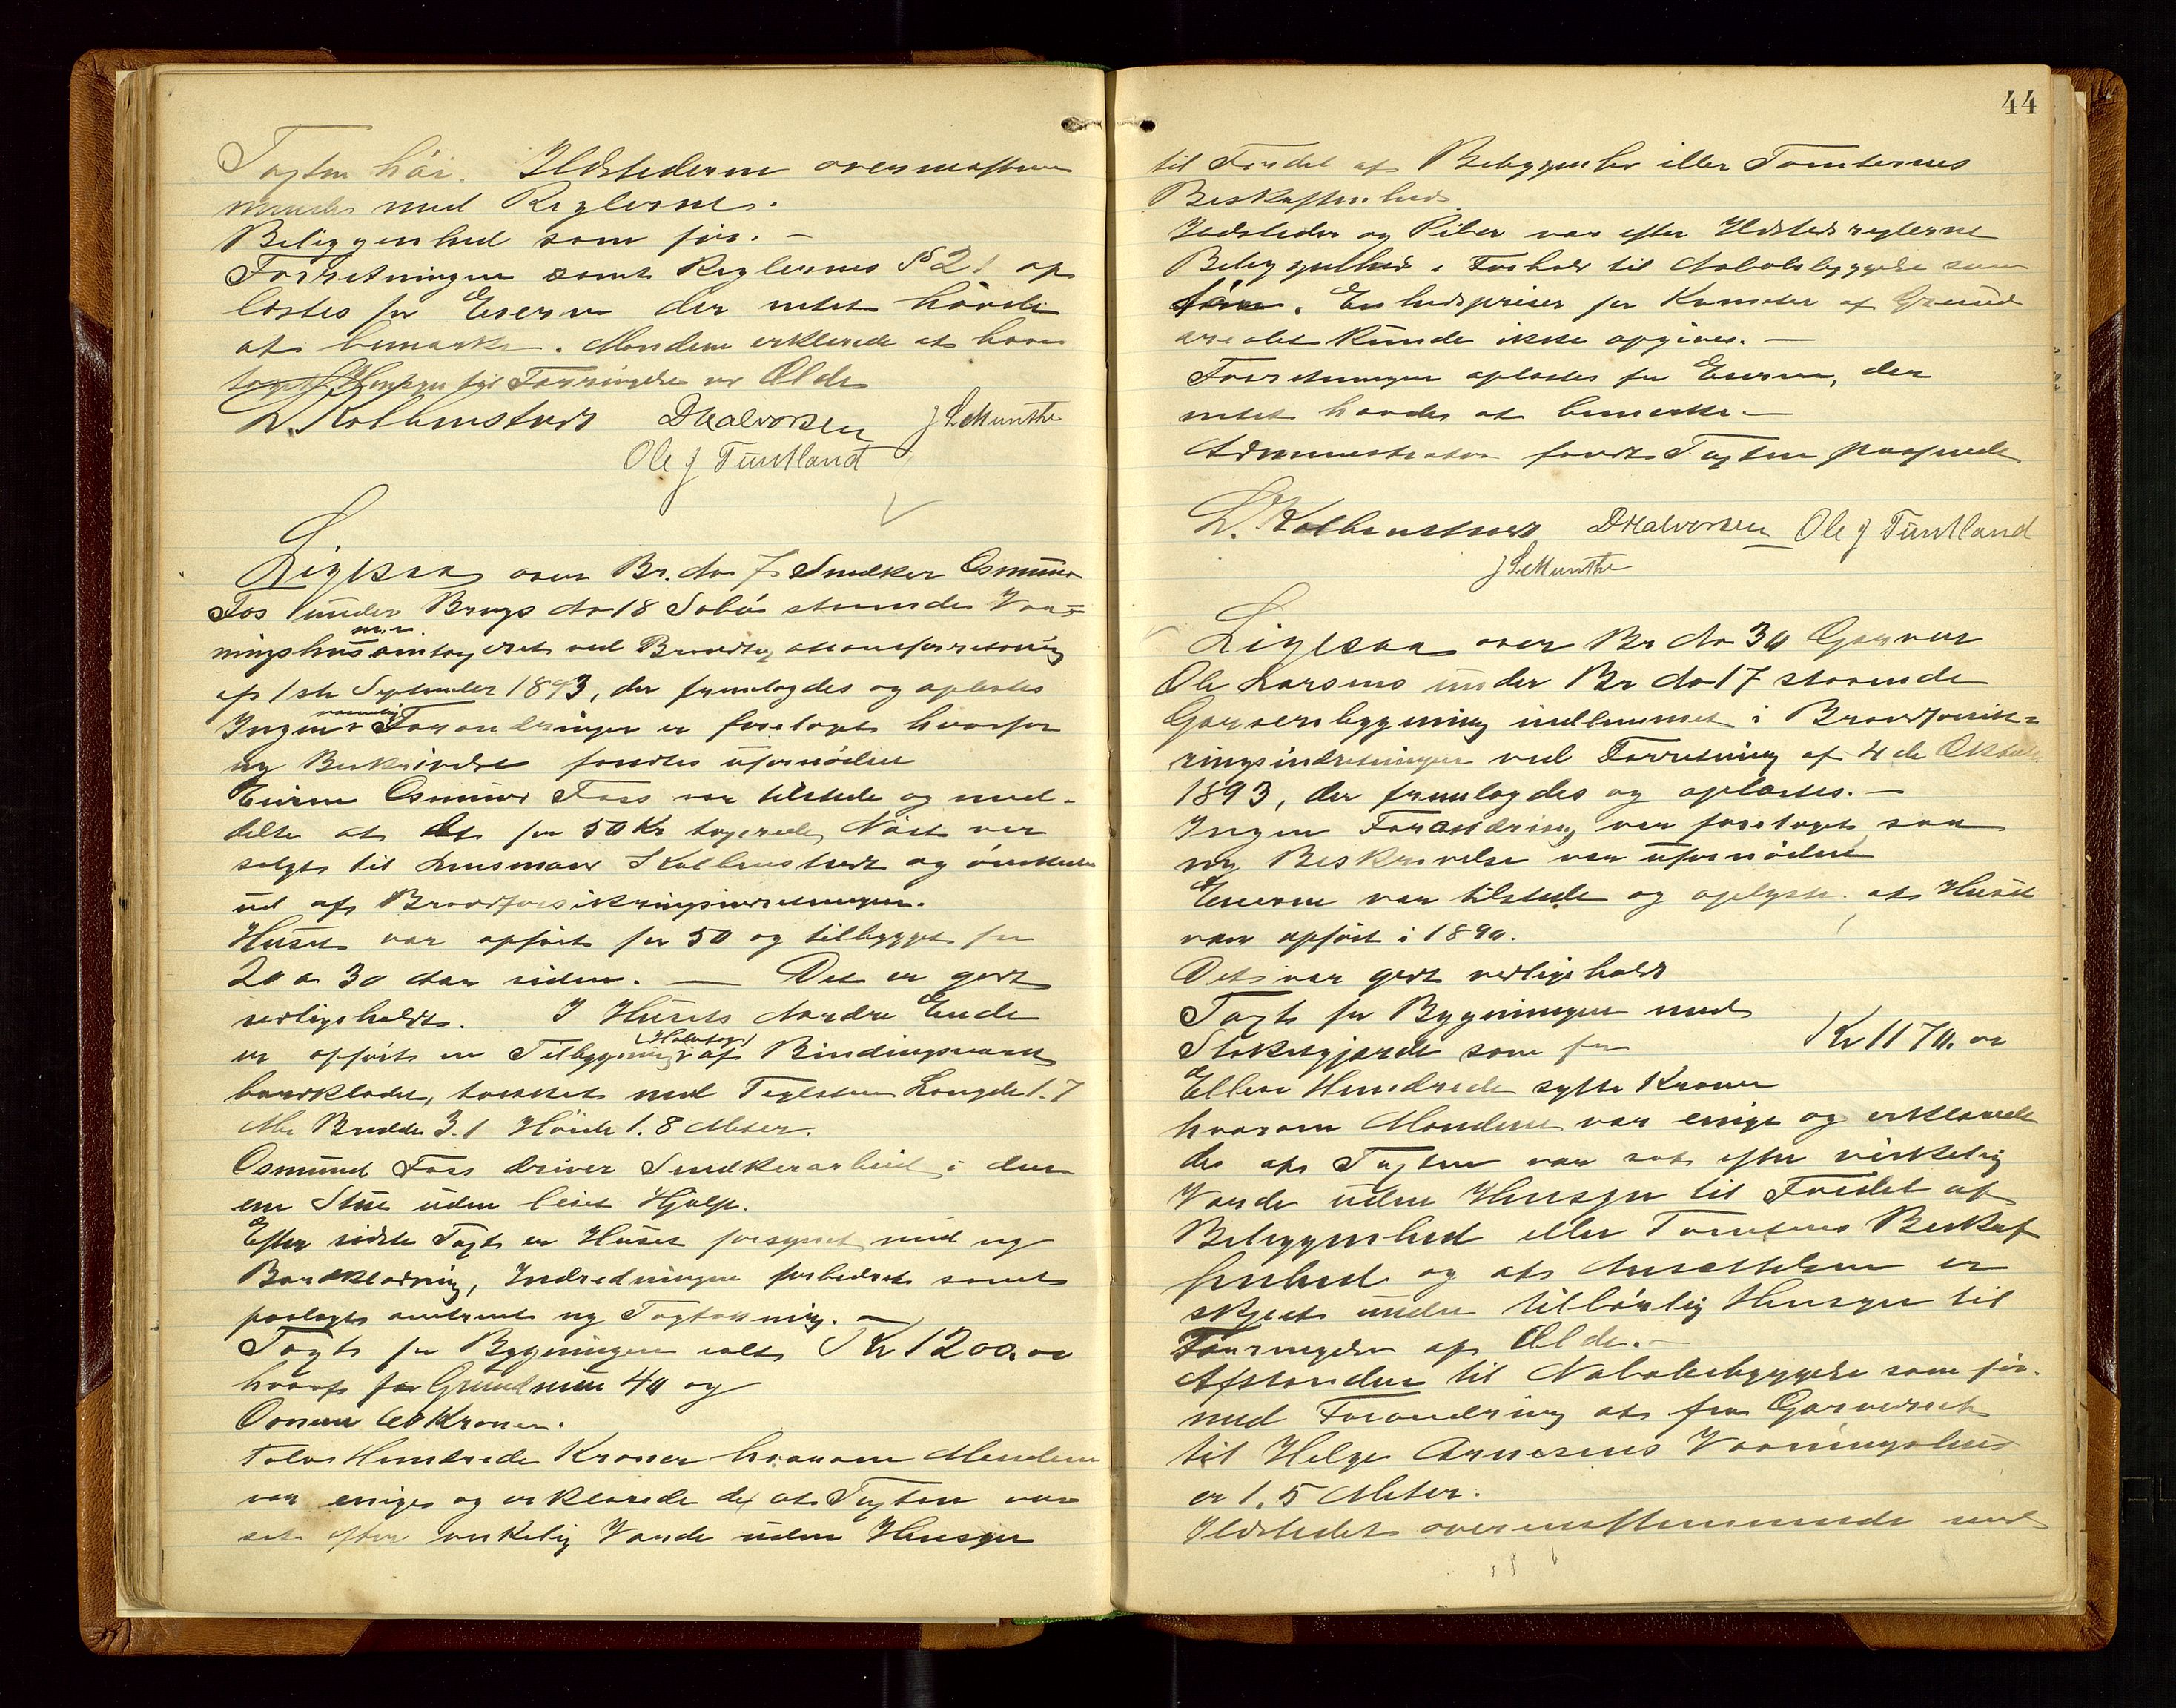 Taxten høi. Ildstederne overensstem
mende med Reglerne.
Beliggenhed som før. -
Forretningen samt Reglernes § 21 op
læstes for Eieren der intet havde
at bemærke. Mændene erklærede at have
taget Hensyn til Forringelse ved Ælde
L. Kolbenstvedt DHalvorsen J L Munthe
Ole J Tuntland
Ligesaa over Br. No 7 Snedker Osmund
Fos under Brugs No 18 Sobø staaende Vaa=
ningshus m.v. antageret ved Brandtaxationsforretning
af 1ste September 1893, der fremlagdes og oplæstes
Ingen væsentlig Forandringer er foretaget hvorfor
ny Beskrivelse fandtes ufornøden
Eieren Osmund Foss var tilstede og med-
delte at det for 50 Kr taxerede Nøst var
solgt til Lensmand Kolbenstvedt og ønskedes
ud af Brandforsikringsindretningen.
Huset var opført for 50 og tilbygget for
20 a 30 Aar siden. — Det er godt
vedligeholdt. I Husets Nordre Ende
er opført en Tilbygning (Halvtag) af Bindingsværk
bordklædt, tækket med Teglsten Længde 1.7
Mr Bredde 3.1 Høide 1.8 Meter.
Osmund Foss driver Snedkerarbeid i den
ene Stue uden leiet Hjælp.
Efter sidste Taxt er Huset forsynet med ny
Bordklædning, Indredningen forbedret samt
paalagt omtrent ny Tagtækning. —
Taxt for Bygningen ialt Kr 1200.00
hvoraf for Grundmur 40 og
Ovnene 60 Kroner.
Tolv Hundrede Kroner hvorom Mændene
var enige og erklærede de at Taxten var
sat efter virkelig Værdi uden Hensyn
44
til Fordel af Beliggenhed eller Tomternes
Beskaffenhed
Ildsteder og Piber var efter Ildstedsreglerne
Beliggenhed i Forhold til Nabobebyggelse som
før. Enhedspriser per Kvmeter af Grund
arealet kunde ikke opgives. —
Forretningen oplæstes for Eieren, der
intet havde at bemærke. —
Administrator fandt Taxten passende
L. Kolbenstvedt DHalvorsen Ole J Tuntland
J L Munthe
Ligesaa over Br No 30 Garver
Ole Larsens under Br No 17 staaende
Garveribygning indlemmet i Brandforsik=
ringsindretningen ved Forretning af 4de Oktober
1893, der fremlagdes og oplæstes. —
Ingen Forandring var foretaget saa
ny Beskrivelse var ufornøden
Eieren var tilstede og oplyste at Huset
var opført i 1890.
Det var godt vedligeholdt
Taxt for Bygningen med
Stakitgjærde som før Kr 1170.00
Elleve Hundrede sytti Kroner
hvorom Mændene var enige og erklærede
de at Taxten var sat efter virkelig
Værdi uden Hensyn til Fordel af
Beliggenhed eller Tomtens Beskaf
fenhed og at Ansættelsen er
skjeet under tilbørlig Hensyn til
Forringelse af Ælde. —
Afstanden til Nabobebyggelse som før
med Forandring at fra Garveriet
til Helge Arnesens Vaaningshus
er 1.5 Meter.
Ildstedet overensstemmende med